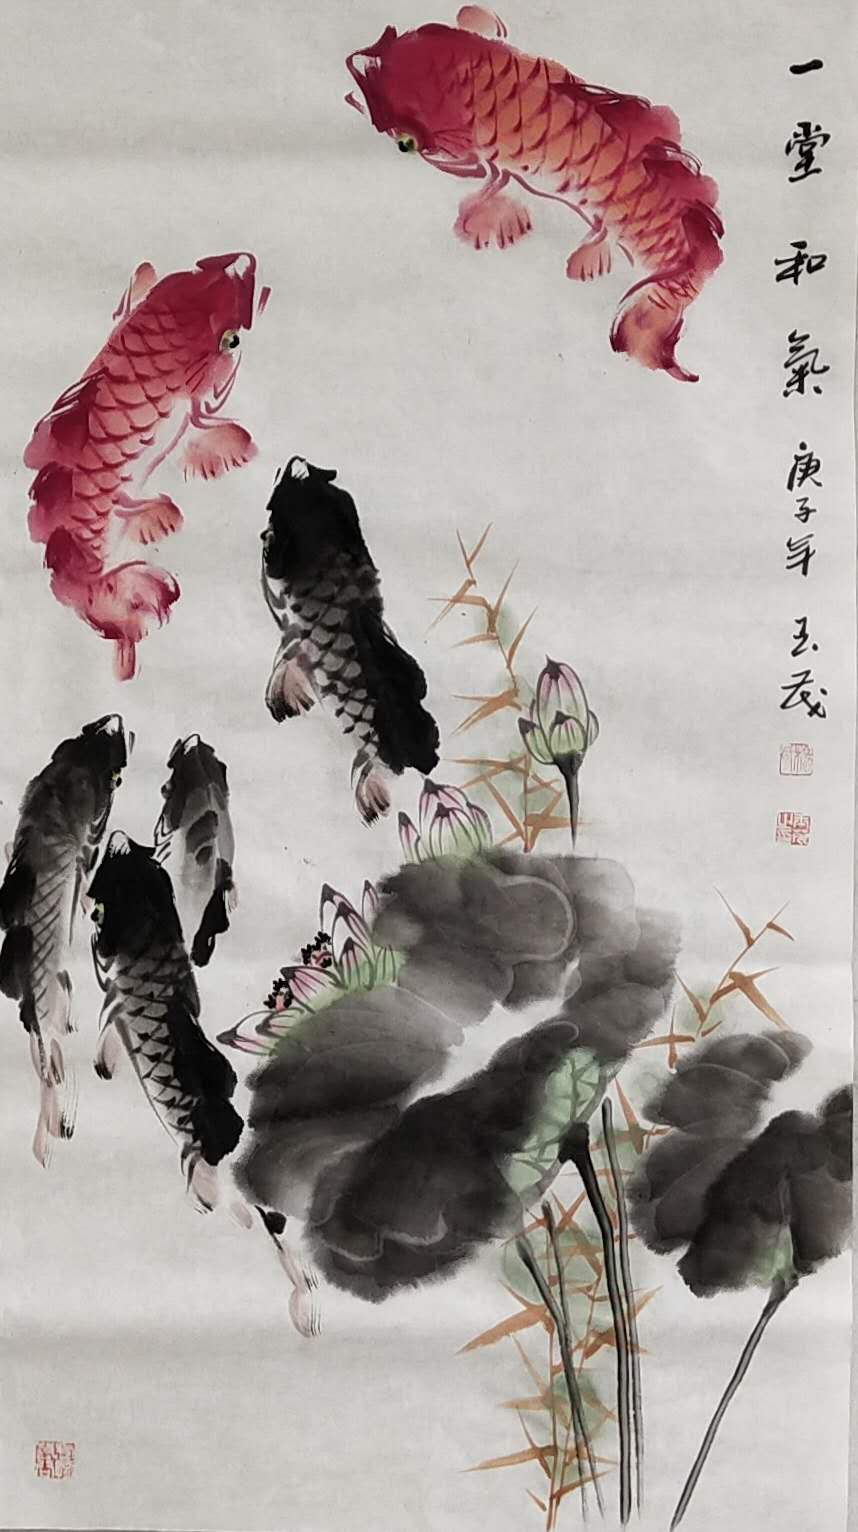 一堂和氣
庚子年 玉茂